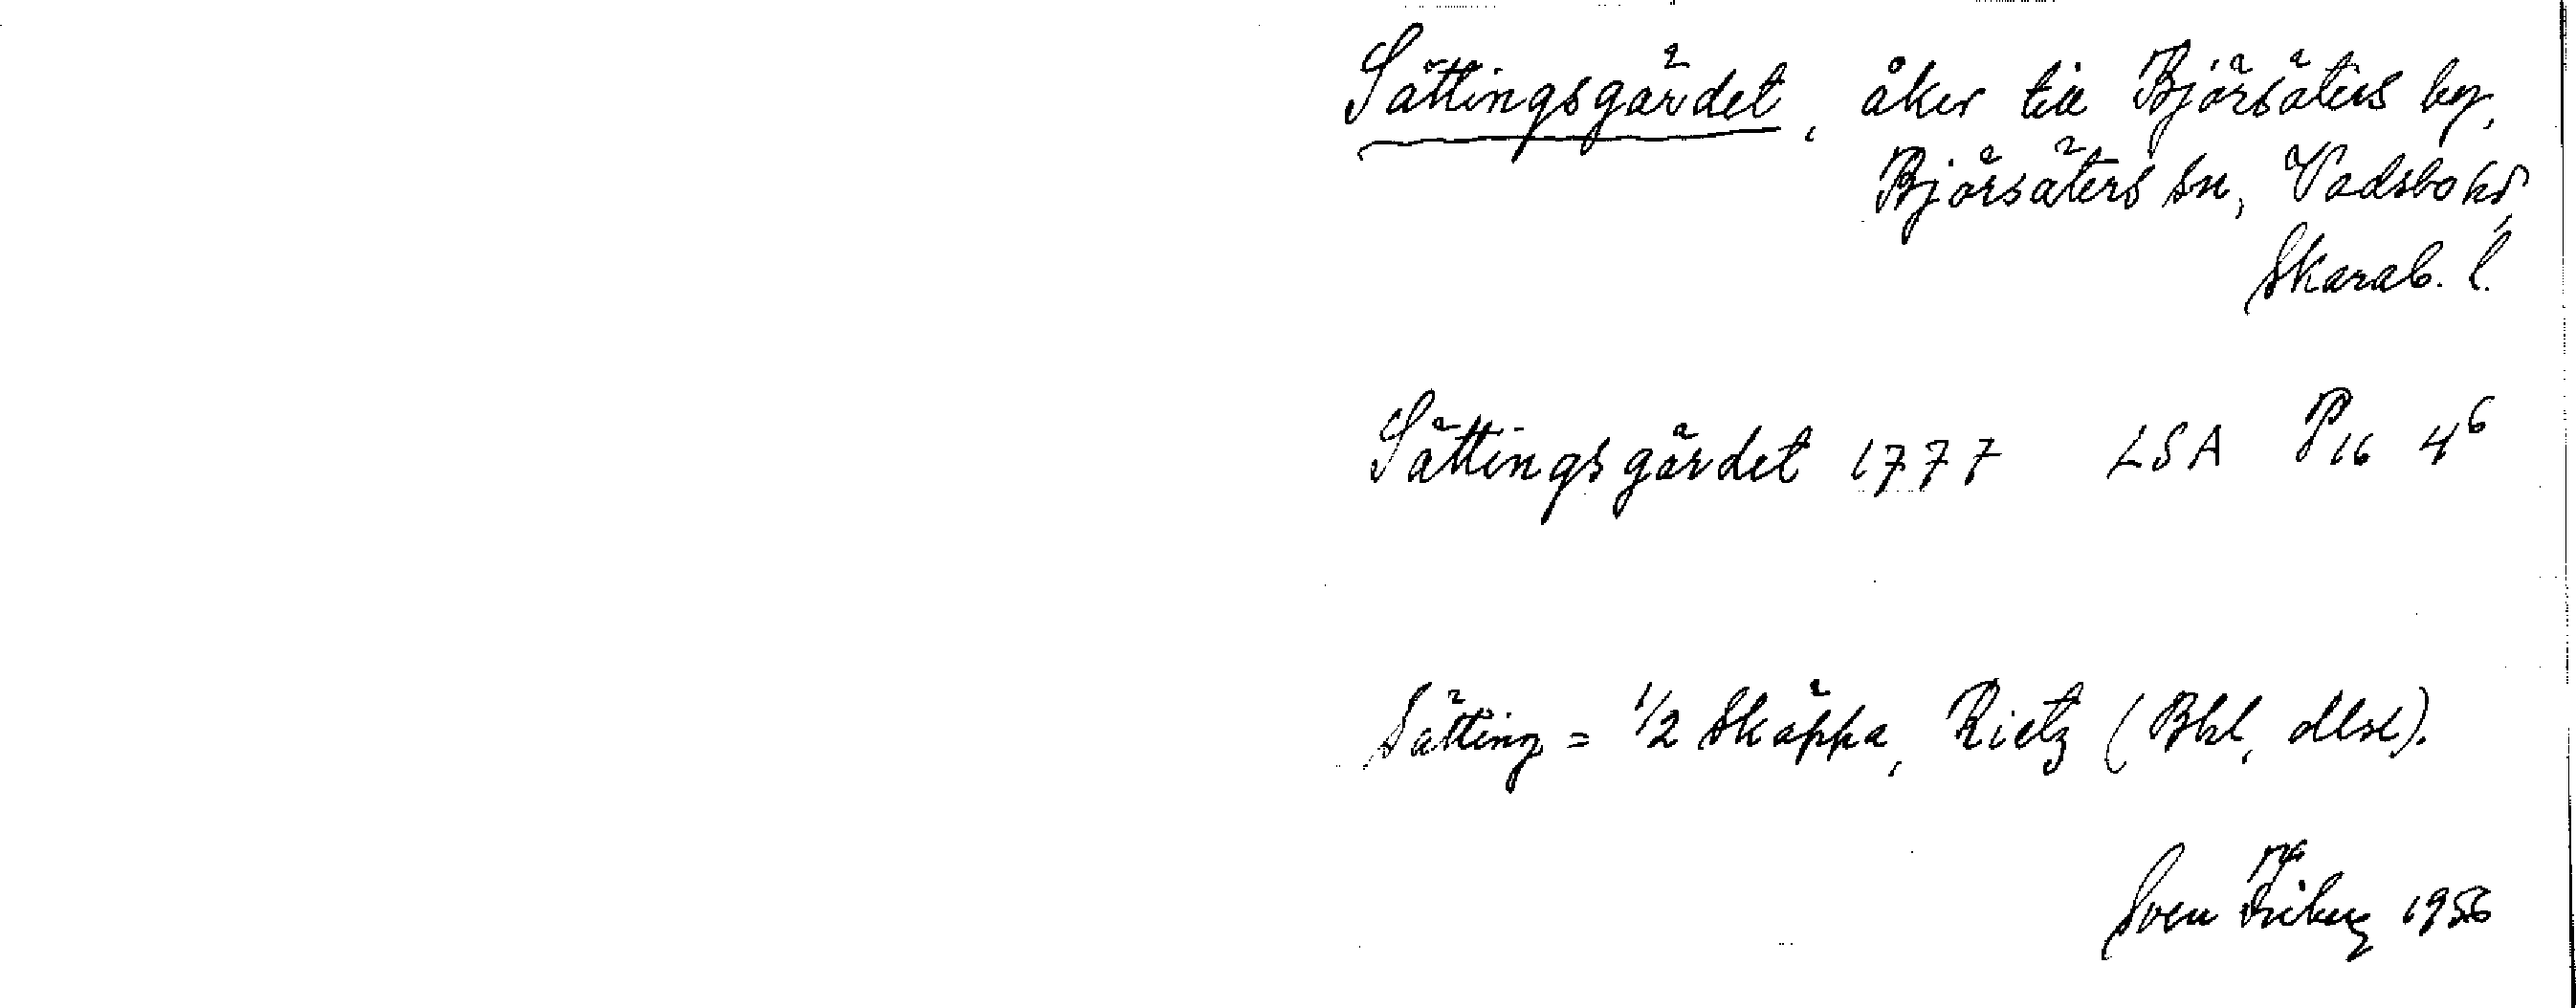 Sättingsgärdet, åker till Björsäters by,
Björsäters sn, Vadsbo hd,
Skarab. l.
Sättingsgärdet 1777 LSA P16 4⁶
Sätting = 1/2 skäppa, Rietz (Bhl, dlsl).
Sven Friberg 1956